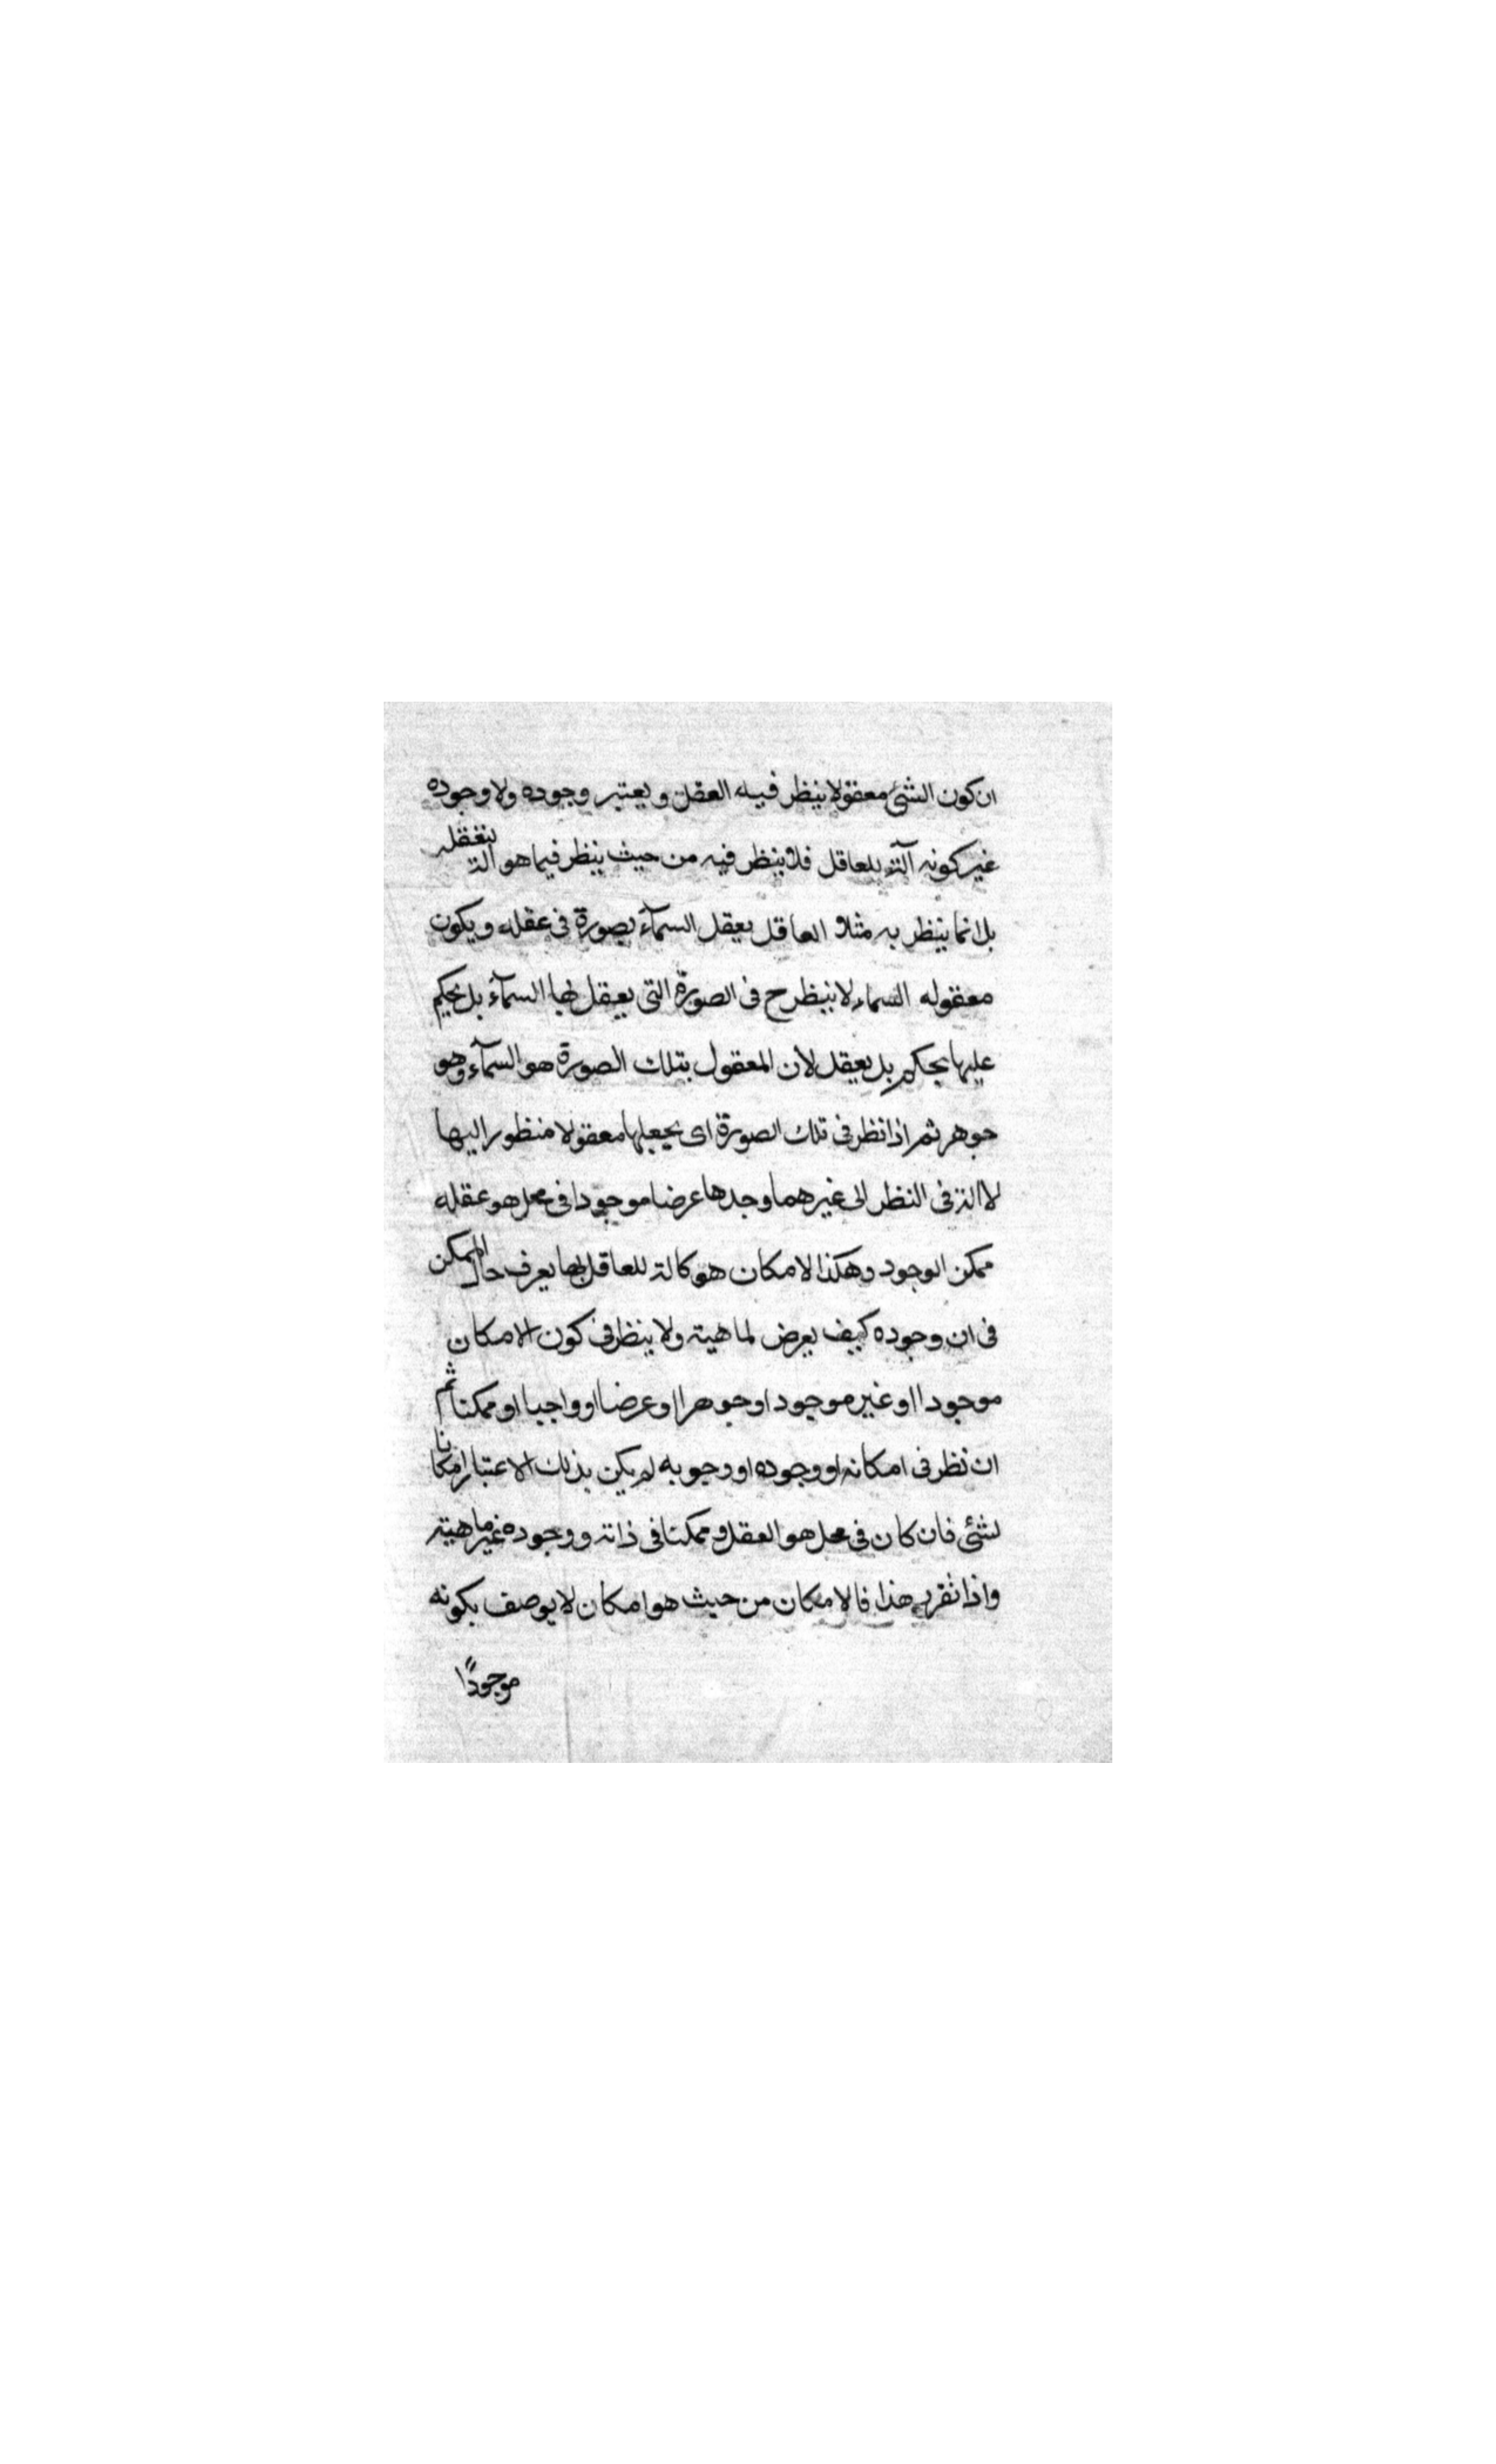 ان كون الشئ معقولا ينظر فيه العقل و يعتبر وجوده ولا وجوده
غير كونه آلة للعاقل فلا ينظر فيه من حيث ينظر فيما هو الة لتعقله
بل انما ينظر به مثلا العاقل يعقل السمآء بصورة فى عقله و يكون
معقوله السماء لا ينظر ح فى الصورة التى يعقل بها السمآء بل يحكم
عليها بحكم بل يعقل لأن المعقول بتلك الصورة هو السمآء وهو
جوهر ثم اذا نظر فى تلك الصورة اى يجعلها معقولا منظورا اليها
لا الة فى النظر الى غيرهما وجدها عرضا موجودا فى محل هو عقله
ممكن الوجود وهكذا الامكان هو كالة للعاقل بها يعرف حال الممكن
فى ان وجوده كيف يعرض لماهية ولا ينظر فى كون الامكان
موجودا او غير موجود او جوهرا او عرضا او واجبا او ممكنا ثم
ان نظر فى امكانه او وجوده او وجوبه لم يكن بذلك الاعتبار امكانا
لشئ فان كان فى محل هو العقل و ممكنا فى ذاته و وجوده غير ماهيته
واذا تقرر هذا فالامكان من حيث هو امكان لا يوصف بكونه
موجودًا